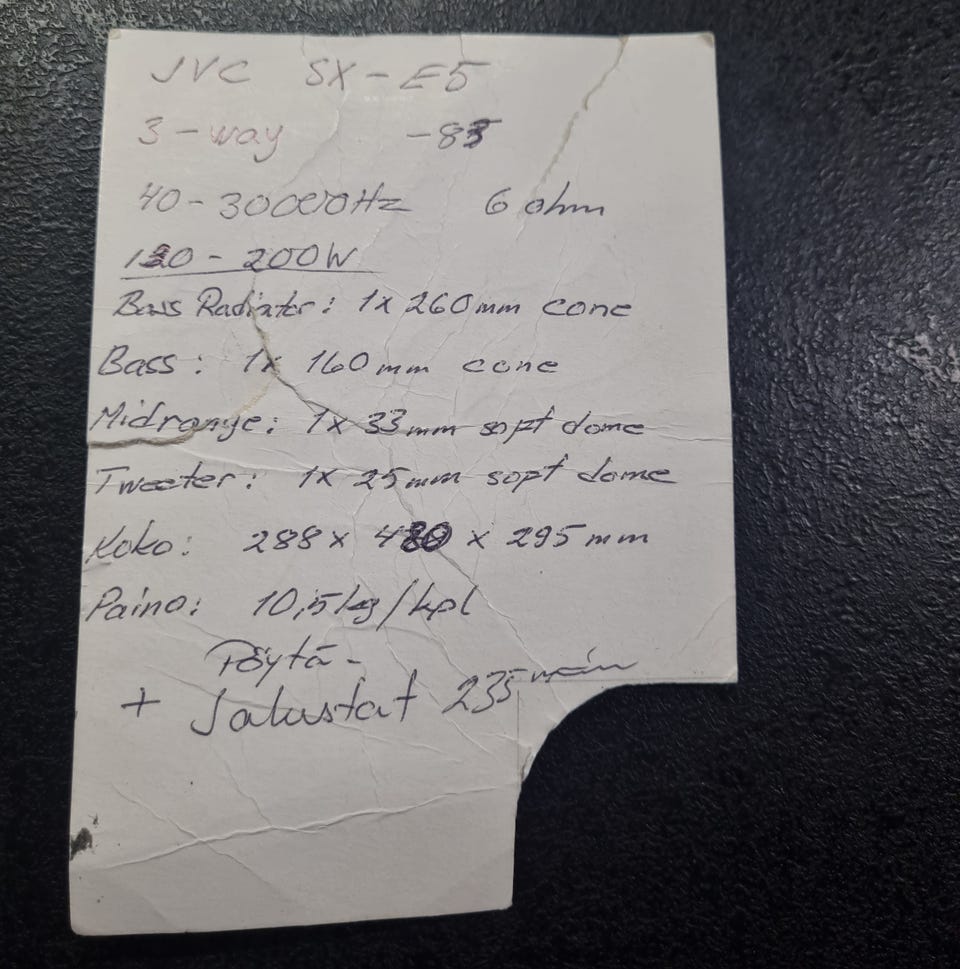 JVC SX-E5
3-way -83
40-30000Hz 6 ohm
120-200W
Bass Radiator: 1x 260mm cone
Bass: 1x 160mm cone
Midrange: 1x 33mm sopt dome
Tweeter: 1x 25mm sopt dome
Koko: 288x 480 x 295mm
Paino: 10,5kg/kpl
Pöytä-
+ Jalustat 235